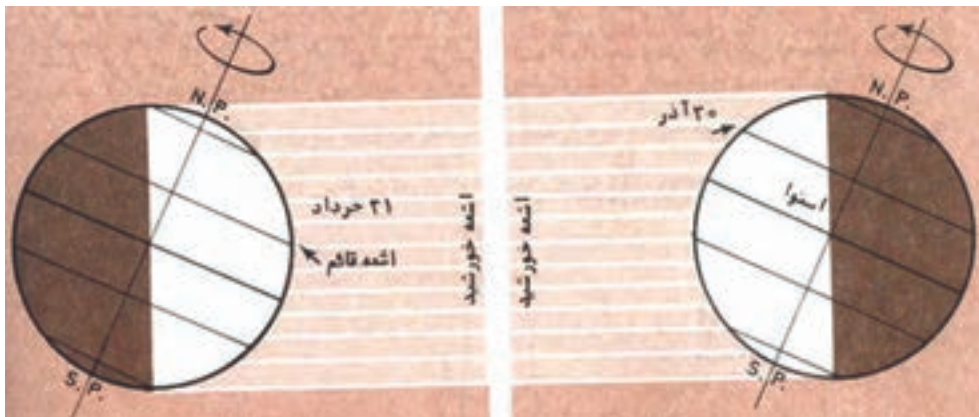 N. P.
۳۱ خرداد
اشعه قائم
S. P.
اشعه خورشید
اشعه خورشید
N. P.
۳۰ آذر
استوا
S. P.